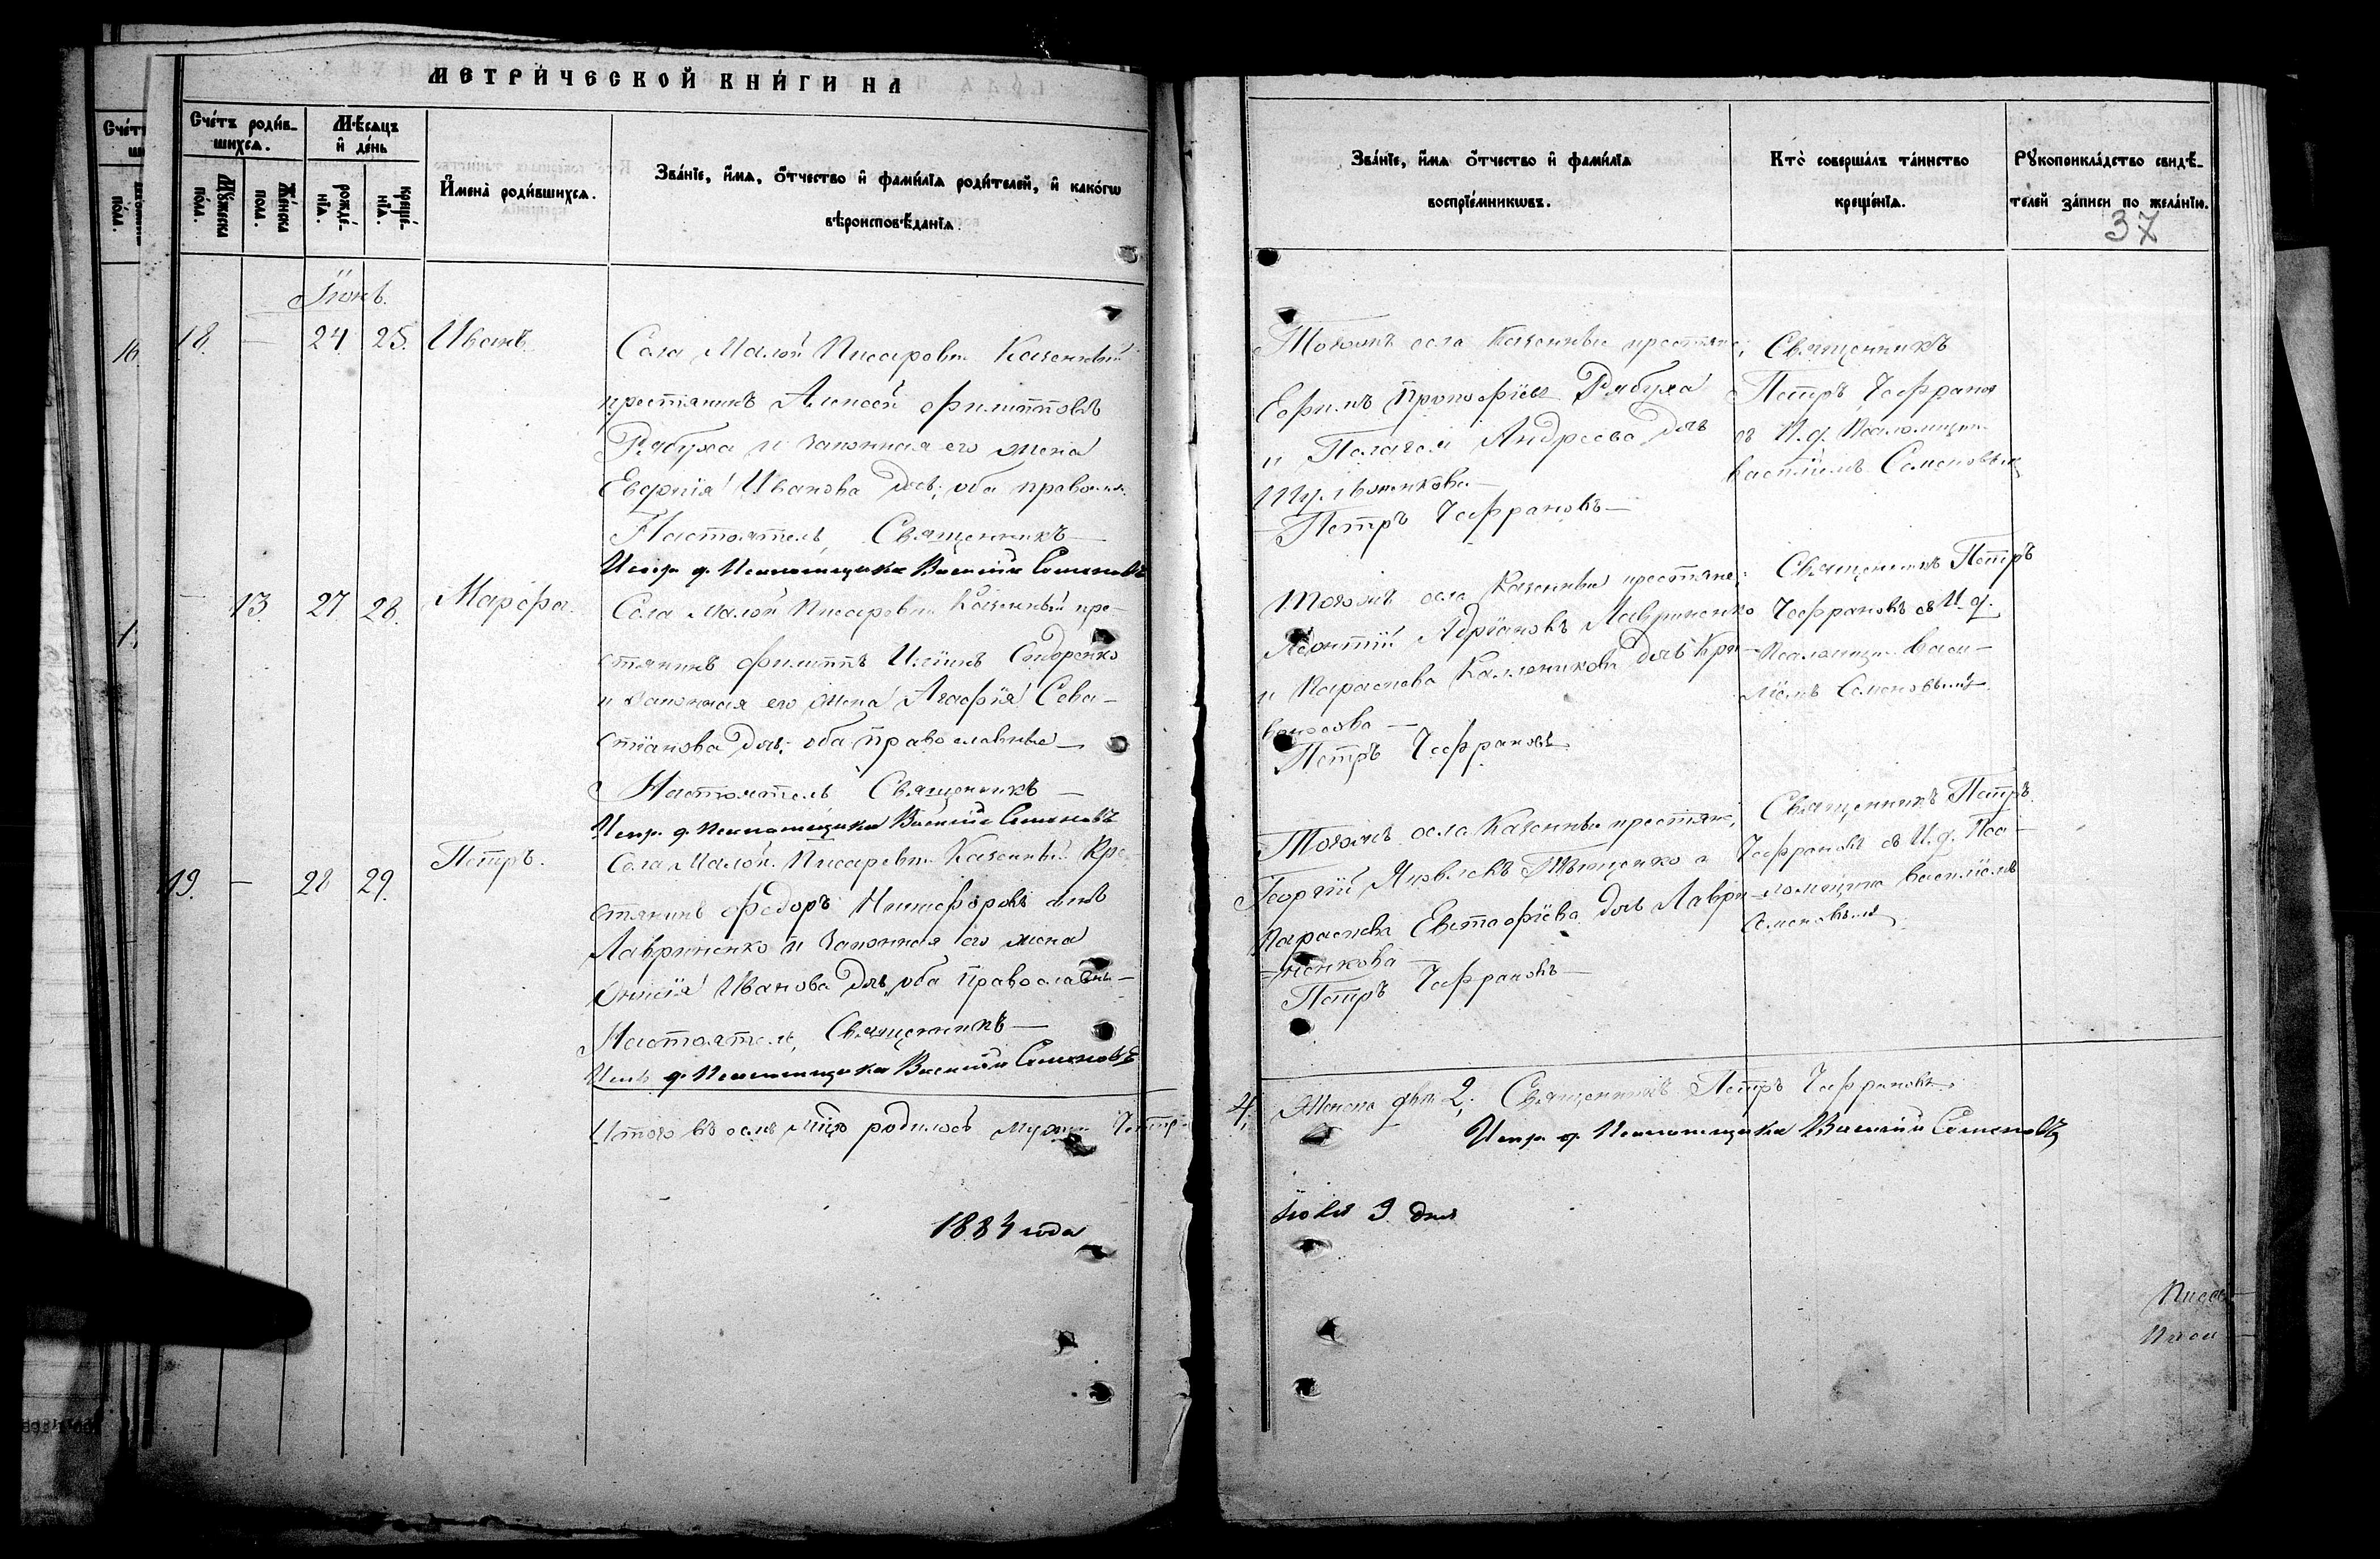 МЕТРИ́ЧЕСКОЙ КНИ́ГИ НА
Сче́тъ роди́в-
шихсѧ.
Мѣ́сѧцъ
и҆ де́нь
Мꙋ́жеска
по́ла.
Же́нска
пола.
рожде́-
нїѧ.
креще́-
нїѧ.
И҆мена̀ роди́вшихсѧ.
Зва́нїе, и҆́мѧ, ѻ҆́тчество и҆ фами́лїѧ роди́телей, и҆ како́гѡ
вѣроисповѣ́данїѧ.
Іюнь.
18. — 24 25. Иванъ.
Села Малой Писаревки Казенный
крестьянинъ Алексѣй Филипповъ
Рябуха и законная его жена
Евфимія Иванова дочь; оба православн.
Настоятель, Священникъ —
Испр. д. Псаломщика Василій Семеновъ
— 13. 27. 28. Марфа.
Села Малой Писаревки Казенный кре-
стьянинъ Филиппъ Ильинъ Сидоренко
и законная его жена Агафія Сева-
стіанова дочь; оба православные —
Настоятель Священникъ —
Испр. д. Псаломщика Василій Семеновъ
19. — 28 29. Петръ.
Села Малой Писаревки Казенный Кре-
стьянинъ Федоръ Никифоровъ сынъ
Лавриненко и законная его жена
Иванова дочь, оба православн. —
Настоятель, Священникъ —
Исп. д. Псаломщика Василій Семеновъ
Итого въ семъ м-цѣ родилось мужск. Четыр-
1884 года
Зва́нїе, и҆́мѧ ѻ҆́тчество и҆ фами́лїѧ
воспрїе́мникѡвъ.
Кто̀ соверша́лъ та́инство
креще́нїѧ.
Рꙋкоприкла́дство свидѣ́-
телей за́писи по жела́нїю.
37
Тогожъ села Казенные крестьяне;
Ефимъ Прокофіевъ Рябуха
и Пелагея Андреева дочь
Петръ Чефрановъ —
Священникъ
Петръ Чефранов
съ И.д. Псаломщик.
Василіемъ Семеновымъ
Тогожъ села Казенные крестьяне;
Леонтій Адріановъ Лавриненко
и Параскева Каллиникова дочь Кри-
Петръ Чефрановъ
Священникъ Петръ
Чефрановъ съ И.д.
Псаломщик. Васи-
ліемъ Семеновымъ
Тогожъ села Казенные крестьяне,
Георгій Яковлевъ Тимченко и
Параскева Евстафіева дочь Лаври-
ненкова —
Петръ Чефрановъ —
Священникъ Петръ
Чефрановъ съ И.д. Пса-
ломщика Василіемъ
Семеновымъ
4, Женска двѣ 2, Священникъ Петръ Чефрановъ.
Испр. д. Псаломщика Василій Семеновъ
Іюля 9 дня